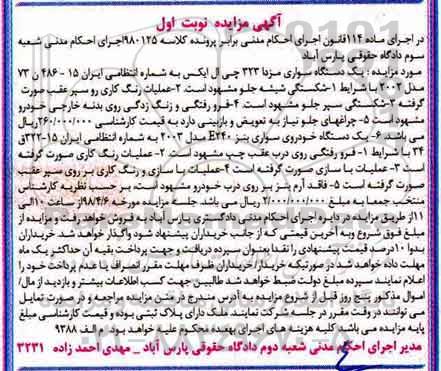 آگهی مزایده نوبت اول
در اجرای ماده ۱۱۴قانون اجرای احکام مدنی برابر پرونده کلاسه ۹۸۰۱۲۵اجرای احکام مدنی شعبه
سوم دادگاه حقوقی پارس آباد
مورد مزایده : یک دستگاه سواری مزدا ۳۲۳ چی ال ایکس به شماره انتظامی ایران ۱۵ - ۴۸۶ ن ۷۳
مدل ۲۰۰۲ با شرایط ۱-شکستگی شیشه جلو مشهود است. ۲-عملیات رنگ کاری رو سپر عقب صورت
گرفته ۳-شکستگی سپر جلو مشهود است. ۴-فرو رفتگی و زنگ زدگی روی بدنه خارجی خودرو
مشهود است ۵-چراغهای جلو نیاز به تعویض و بازبینی دارد به قیمت کارشناسی ۲۶۰/۰۰۰/۰۰۰ریال
می باشد. ۶- یک دستگاه خودروی سواری بنز E۲۴۰ مدل ۲۰۰۳ به شماره انتظامی ایران ۱۵-۳۲۲ق
۳۴ با شرایط ۱-فرو رفتگی روی درب عقب چپ مشهود است. ۲-عملیات رنگ کاری صورت گرفته
است ۳-عملیات با سازی صورت گرفته است ۴-عملیات با سازی و رنگ کاری بر روی سپر عقب
صورت گرفته است ۵-فاقد آرم بنز بر روی درب خودرو مشهود است، بر حسب نظریه کارشناس
منتخب جمعا به مبلغ ۲/۰۰۰/۰۰۰/۰۰۰ ریال می باشد. جلسه مزایده مورخه ۹۸/۴/۶از ساعت ۱۰الی
۱۱از طریق مزایده در دایره اجرای احکام مدنی دادگستری پارس آباد به فروش خواهد رفت و مزایده از
مبلغ فوق شروع وبه آخرین قیمتی که از جانب خریداران پیشنهاد شود واگذار خواهد شد. خریداران
بدوا ۱۰درصد قیمت پیشنهادی را نقدا بعنوان سپرده دریافت و جهت پرداخت بقیه آن حداکثر یک ماه
مهلت داده خواهد شد در صورتیکه خریدار/خریداران ظرف مهلت مقرر انصراف یا عدم پرداخت خود را
اعلام نمایند سپرده مبلغ دولت ضبط خواهد شد طالبین جهت کسب اطلاعات بیشتر و بازدید از مال/
اموال مذکور پنج روز قبل از شروع مزایده به آدرس مندرج در متن مزایده مراجعه و در صورت تمایل
می توانند در وقت مقرر در جلسه شرکت نمایند. ملک دارای پلاک ثبتی بوده و قیمت کارشناسی مبلغ
پایه مزایده می باشد. کلیه هزینه های اجرای بهعده محکوم علیه خواهد بود. م الف ۹۳۸۸
مدیر اجرای احکام مدنی شعبه دوم دادگاه حقوقی پارس آباد _ مهدی احمد زاده ۳۲۳۱